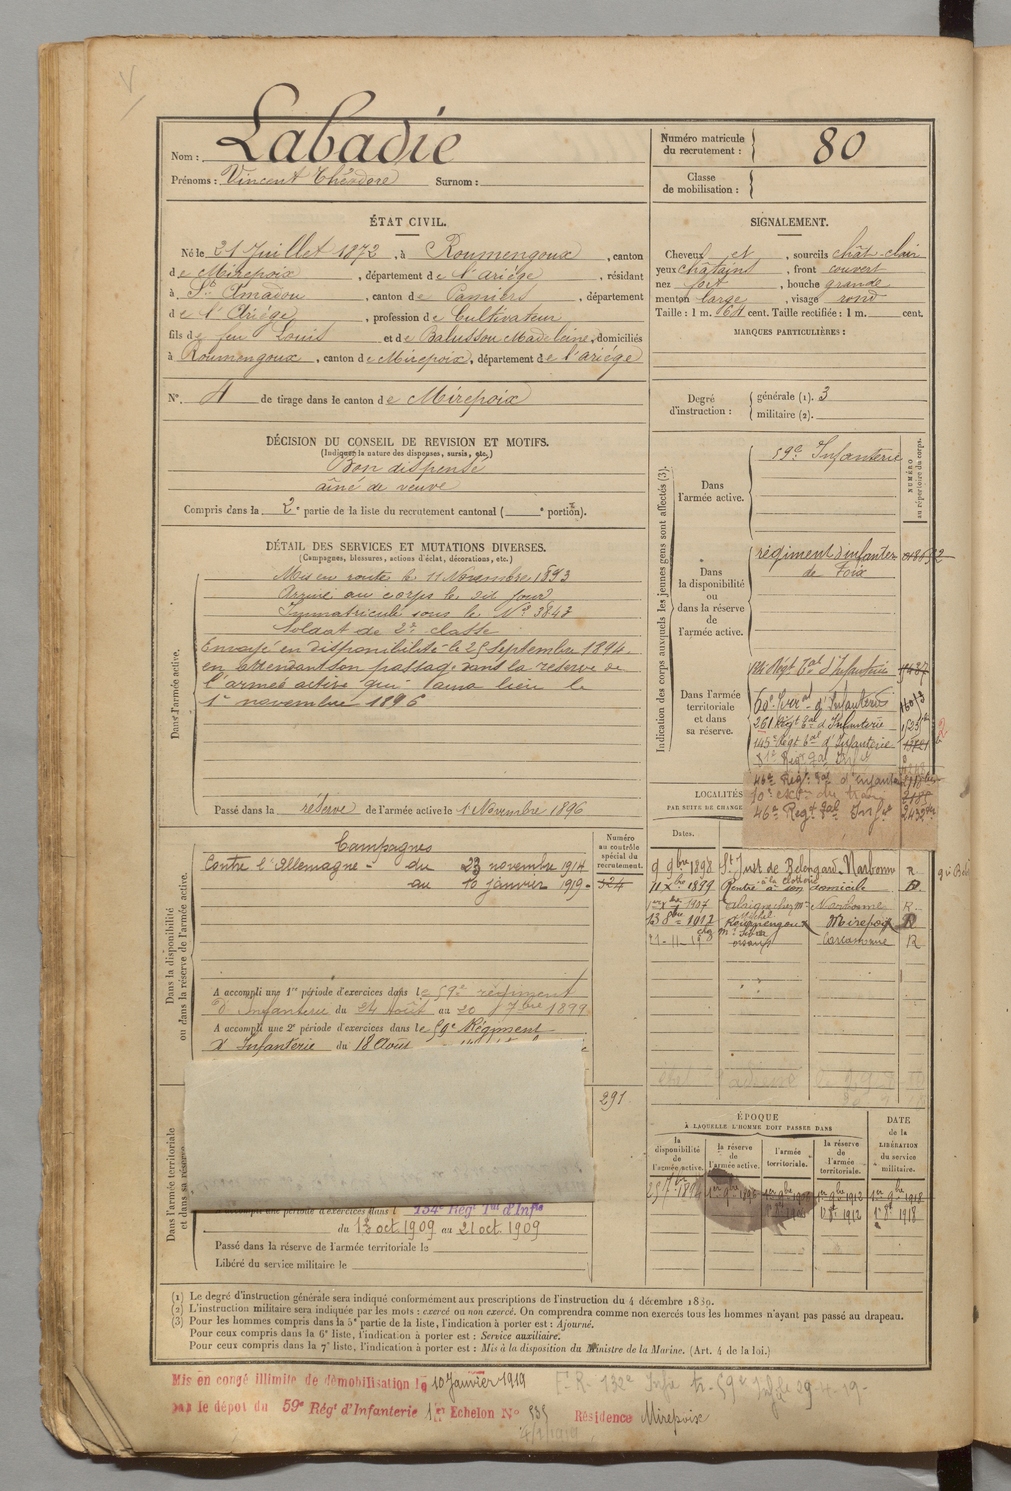 Nom : Labadie
Prénoms : Vincent Théodore Surnom :
Numéro matricule du recrutement : 80
Classe de mobilisation :
ÉTAT CIVIL.
Né le 21 Juillet 1872, à Roumengoux, canton
de Mirepoix, département de l'Ariége, résidant
à St Amadou, canton de Pamiers, département
de l'Ariége, profession de Cultivateur
fils de feu Louis et de Balussou Madeleine, domiciliés
à Roumengoux, canton de Mirepoix, département de l'ariége
N° 4 de tirage dans le canton de Mirepoix
SIGNALEMENT.
Cheveux et, sourcils chât-clair
yeux châtains, front couvert
nez fort, bouche grande
menton large, visage rond
Taille : 1 m. 64 cent. Taille rectifiée : 1 m. cent.
MARQUES PARTICULIÈRES :
Degré d'instruction : générale (1). 3
militaire (2).
DÉCISION DU CONSEIL DE REVISION ET MOTIFS.
(Indiquer la nature des dispenses, sursis, etc.)
Bon dispensé
aîné de veuve
Compris dans la 2e partie de la liste du recrutement cantonal ( e portion).
DÉTAIL DES SERVICES ET MUTATIONS DIVERSES.
(Campagnes, blessures, actions d'éclat, décorations, etc.)
Dans l'armée active.
Mis en route le 11 Novembre 1893
Arrivé au corps le dit jour
Immatriculé sous le N° 3843
Soldat de 2e classe
Envoyé en disponibilité le 25 Septembre 1894.
en attendant son passage dans la reserve de
l'armée active qui aura lieu le
1er novembre 1896
Passé dans la réserve de l'armée active le 1 Novembre 1896
Indication des corps auxquels les jeunes gens sont affectés (3).
NUMÉRO au répertoire du corps.
Dans l'armée active.
59e Infanterie
Dans la disponibilité ou dans la réserve de l'armée active.
régiment d'infanterie
de Foix
Dans l'armée territoriale et dans sa réserve.
134 Régt Tal d'Infanterie
60e Terral d'Infanterie 16013
261 Régt Tal d'Infanterie
145e Régt Tal d'Infanterie
46e Régt Tal d'infanterie
10e escon du train
46e Regt Tal Infie
LOCALITÉS
PAR SUITE DE CHANGE
Dates.
9 9bre 1898 St Just de Belengard Narbonne R
11 Xbre 1899 Rentre à son domicile
1907 Narbonne R
138bre 1917 Roumengoux Mirepoix R
Carcassonne R
Dans la disponibilité ou dans la réserve de l'armée active.
Numéro au contrôle spécial du recrutement.
Campagnes
Contre l'Allemagne du 23 novembre 1914
au 10 janvier 1919.
324
A accompli une 1re période d'exercices dans le 59e régiment
d'Infanterie du 24 Août au 20 7bre 1899
A accompli une 2e période d'exercices dans le 59e Régiment
d'Infanterie du 18 Août
291
Dans l'armée territoriale et dans sa réserve
période d'exercices dans l 134e Régt Tal d'Infie
du 13 oct. 1909 au 21 oct. 1909
Passé dans la réserve de l'armée territoriale le
Libéré du service militaire le
ÉPOQUE
À LAQUELLE L'HOMME DOIT PASSER DANS
la disponibilité de l'armée active.
la réserve de l'armée active.
l'armée territoriale.
la réserve de l'armée territoriale.
DATE de la LIBÉRATION du service militaire.
25 7bre 1894 1er 9bre 1896 1er 9bre 1906 1er 9bre 1912 1er 9bre 1918
1 8t 1912 1 8t 1918
(1) Le degré d'instruction générale sera indiqué conformément aux prescriptions de l'instruction du 4 décembre 1889.
(2) L'instruction militaire sera indiquée par les mots : exercé ou non exercé. On comprendra comme non exercés tous les hommes n'ayant pas passé au drapeau.
(3) Pour les hommes compris dans la 5e partie de la liste, l'indication à porter est : Ajourné.
Pour ceux compris dans la 6e liste, l'indication à porter est : Service auxiliaire.
Pour ceux compris dans la 7e liste, l'indication à porter est : Mis à la disposition du Ministre de la Marine. (Art. 4 de la loi.)
Mis en congé illimité de démobilisation le 10 Janvier 1919
par le dépôt du 59e Régt d'Infanterie 1er Echelon N° 535 Résidence Mirepoix
F. R. 132e Infie tr. 59e Infie 29-4-19-
4/1/1919